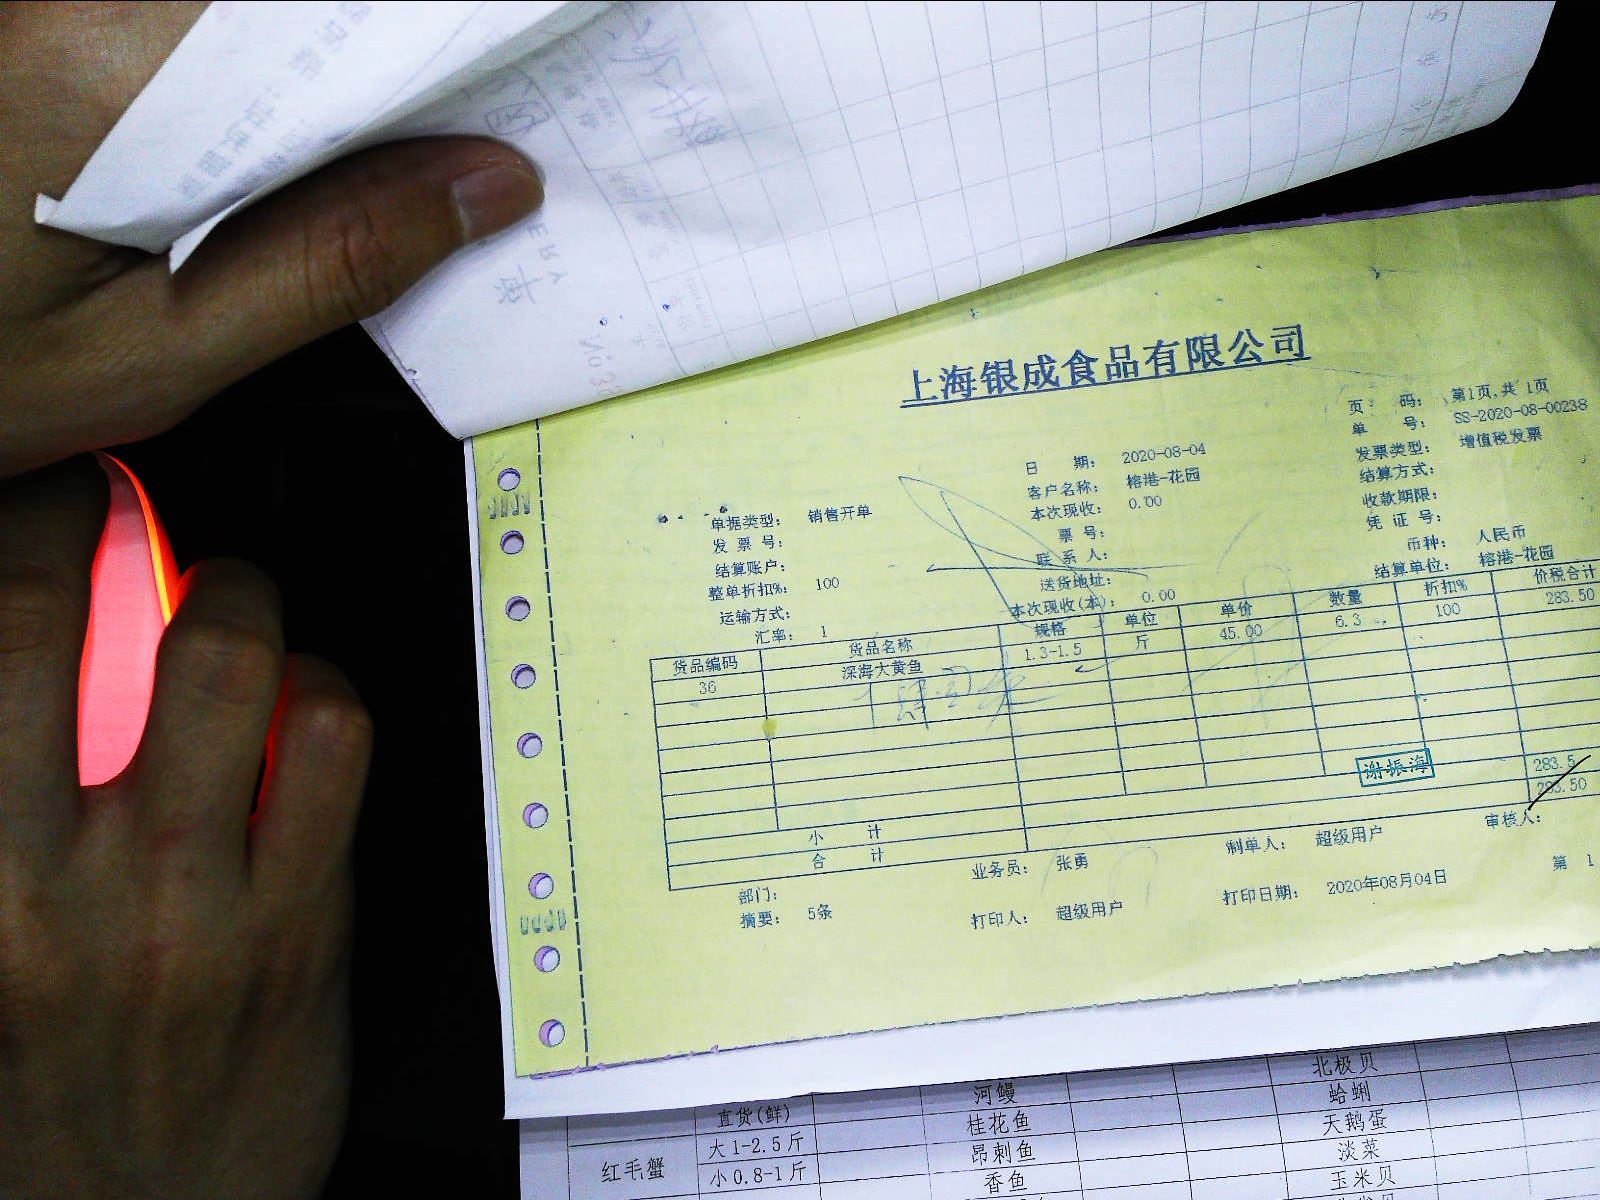 上海银成食品有限公司
页 码： 第1页,共 1页
单 号： SS-2020-08-00238
日 期： 2020-08-04
发票类型： 增值税发票
客户名称： 榕港-花园
结算方式：
单据类型： 销售开单
本次现收： 0.00
收款期限：
发 票 号：
票 号：
凭 证 号：
结算账户：
联 系 人：
币种： 人民币
整单折扣% 100
送货地址：
结算单位： 榕港-花园
运输方式：
本次现收(本)： 0.00
汇率： 1
货品编码 货品名称 规格 单位 单价 数量 折扣% 价税合计
36 深海大黄鱼 1.3-1.5 斤 45.00 6.3 100 283.50
谢振海
小 计 283.5
合 计 283.50
部门： 业务员： 张勇 制单人： 超级用户 审核人：
摘要： 5条 打印人： 超级用户 打印日期： 2020年08月04日 第 1
北极贝
直货(鲜) 河鳗 蛤蜊
大1-2.5斤 桂花鱼 天鹅蛋
红毛蟹 昂刺鱼 淡菜
小0.8-1斤 香鱼 玉米贝